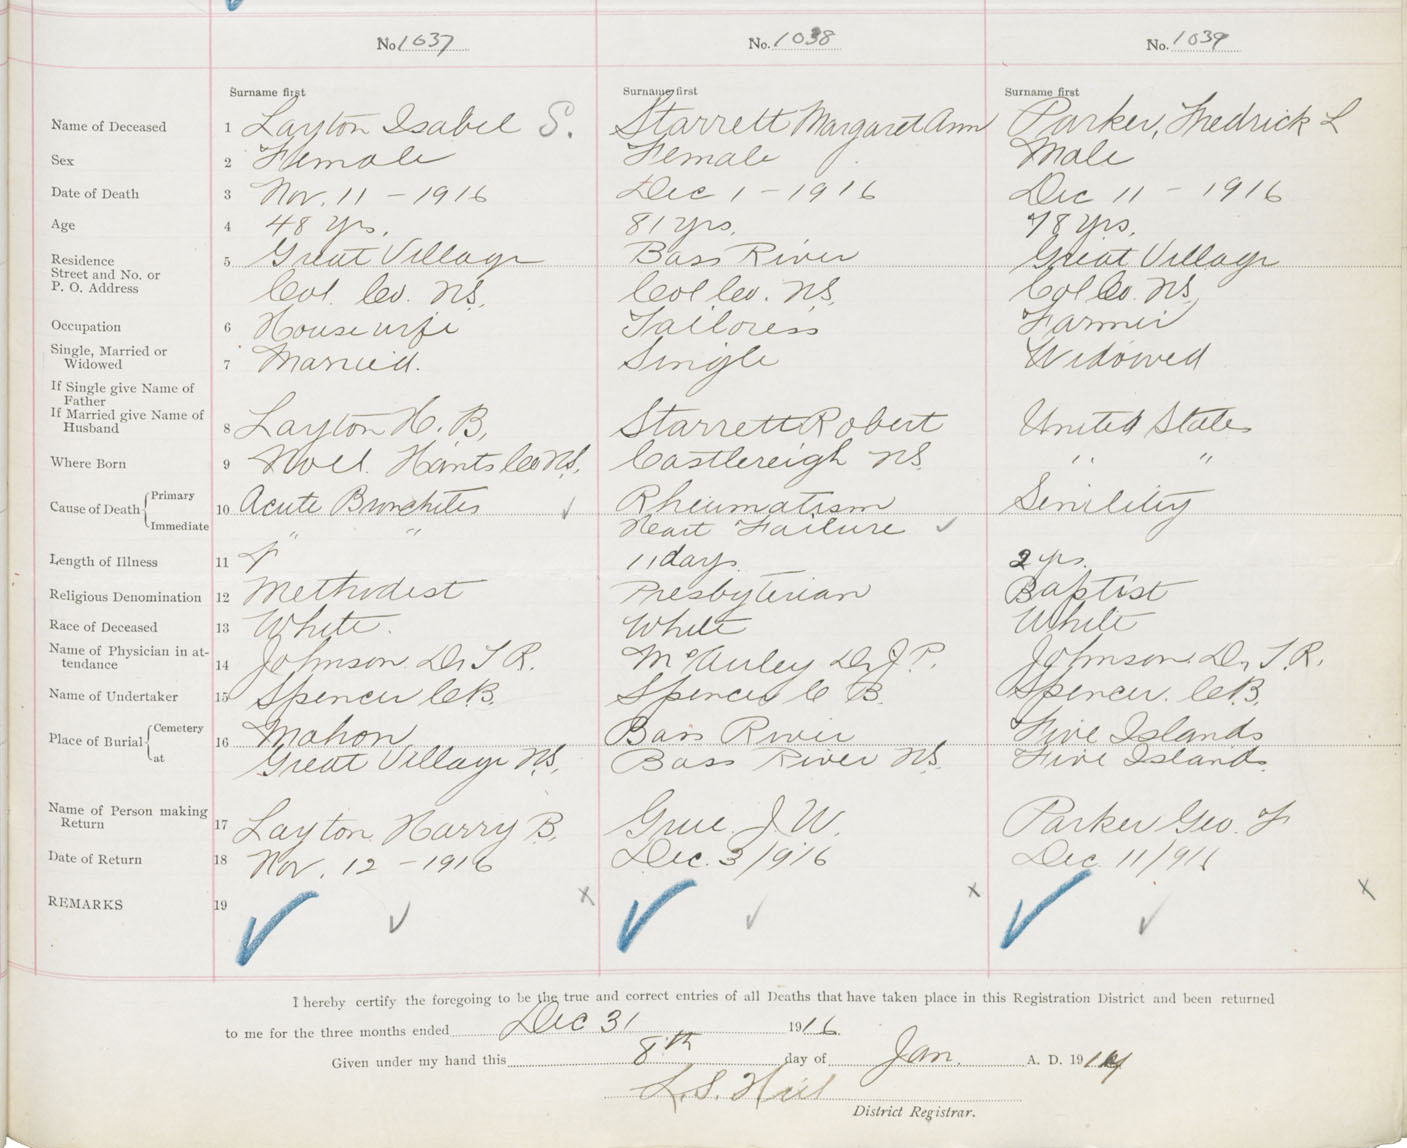 No 1037 No. 1038 No. 1039
Surname first Surname first Surname first
Name of Deceased 1 Layton Isabel S. Starrett Margaret Ann Parker, Fredrick L
Sex 2 Female Female Male
Date of Death 3 Nov. 11 - 1916 Dec 1 - 1916 Dec 11 - 1916
Age 4 48 yrs. 81 yrs. 78 yrs.
Residence 5 Great Village Bass River Great Village
Street and No. or
P. O. Address Col. Co. N.S. Col Co. N.S. Col Co. N.S.
Occupation 6 Housewife Tailoress Farmer
Single, Married or
Widowed 7 Married. Single Widowed
If Single give Name of
Father
If Married give Name of
Husband 8 Layton H. B. Starrett Robert United States
Where Born 9 Noel Hants Co N.S. Castlereigh N.S. " "
Cause of Death Primary 10 Acute Bronchites Rheumatism Senility
Immediate " " Heart Failure
Length of Illness 11 11 days 2 yrs.
Religious Denomination 12 Methodist Presbyterian Baptist
Race of Deceased 13 White. White White
Name of Physician in at-
tendance 14 Johnson Dr T. R. McAuley Dr J. P. Johnson Dr. T. R.
Name of Undertaker 15 Spencer C B. Spencer C B. Spencer. C B.
Place of Burial Cemetery 16 Mahon Bass River Five Islands
at Great Village N.S. Bass River N.S. Five Islands
Name of Person making
Return 17 Layton Harry B. J. W. Parker Geo. F
Date of Return 18 Nov. 12 - 1916 Dec. 3/916 Dec. 11/916
REMARKS 19 x x x
I hereby certify the foregoing to be the true and correct entries of all Deaths that have taken place in this Registration District and been returned
to me for the three months ended Dec 31 1916
Given under my hand this 8th day of Jan. A. D. 19
L. S. Hill
District Registrar.